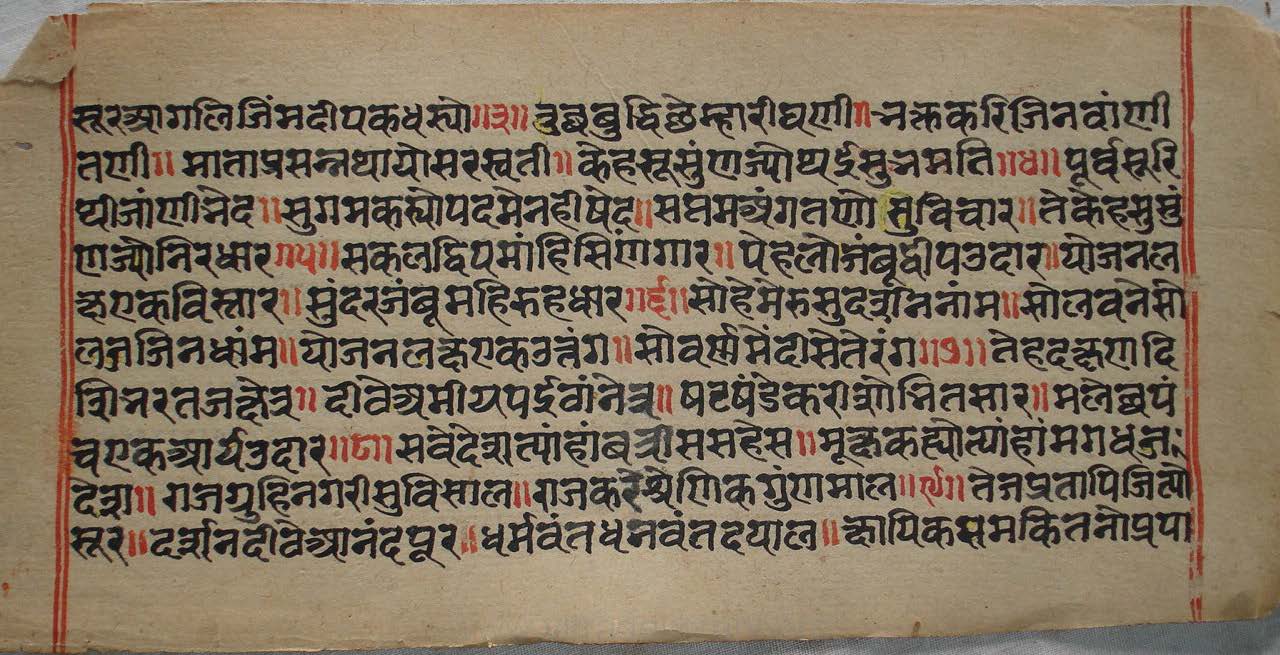 सूरआगलिजिंमदीपकधस्यो॥३॥ तुछबुद्धिछेम्हारीघणी॥ नक्तकरिजिनवांणी
तणी॥ माताप्रसन्नथायोसरस्वती॥ केहसूसुंणज्योथईसुभमति॥४॥ पूर्वसूरि
थीजांणीभेद॥ सुगमकस्योपदमेनहीषेद॥ सप्तमअंगतणो सुविचार॥ तेकेहसुसुं
णज्योनिरधार॥५॥ सकलद्विपमांहिसिंणगार॥ पेहलोजंबूद्वीपउदार॥ योजनल
क्षएकविस्तार॥ सुंदरजंबूमहिरुहधार॥६॥ सोहेमेरुसुदर्शननांम॥ सोलवनेसो
लजिनधांम॥ योजनलक्षएकउत्तंग॥ सोवर्णमेंदीसेतेरंग॥७॥ तेहदक्षणदि
शिभरतजक्षेत्र॥ दीवेअमीयपईवांनेत्र॥ षटषंडेकरीशोभितसार॥ मलेछपं
चएकआर्यउदार॥८॥ सवेदेशत्यांहांबत्रीससहेस॥ मूक्षकह्यौत्यांहांमगधज
देश॥ राजग्रुहिनगरीसुविसाल॥ राजकरेश्रेणिकगुंणमाल॥९॥ तेजप्रतापिजित्यो
सूर॥ दर्शनदीवेआनंदपूर॥ धर्मवंतधनवंतदयाल॥ क्षायिकसमकितनोप्रपा